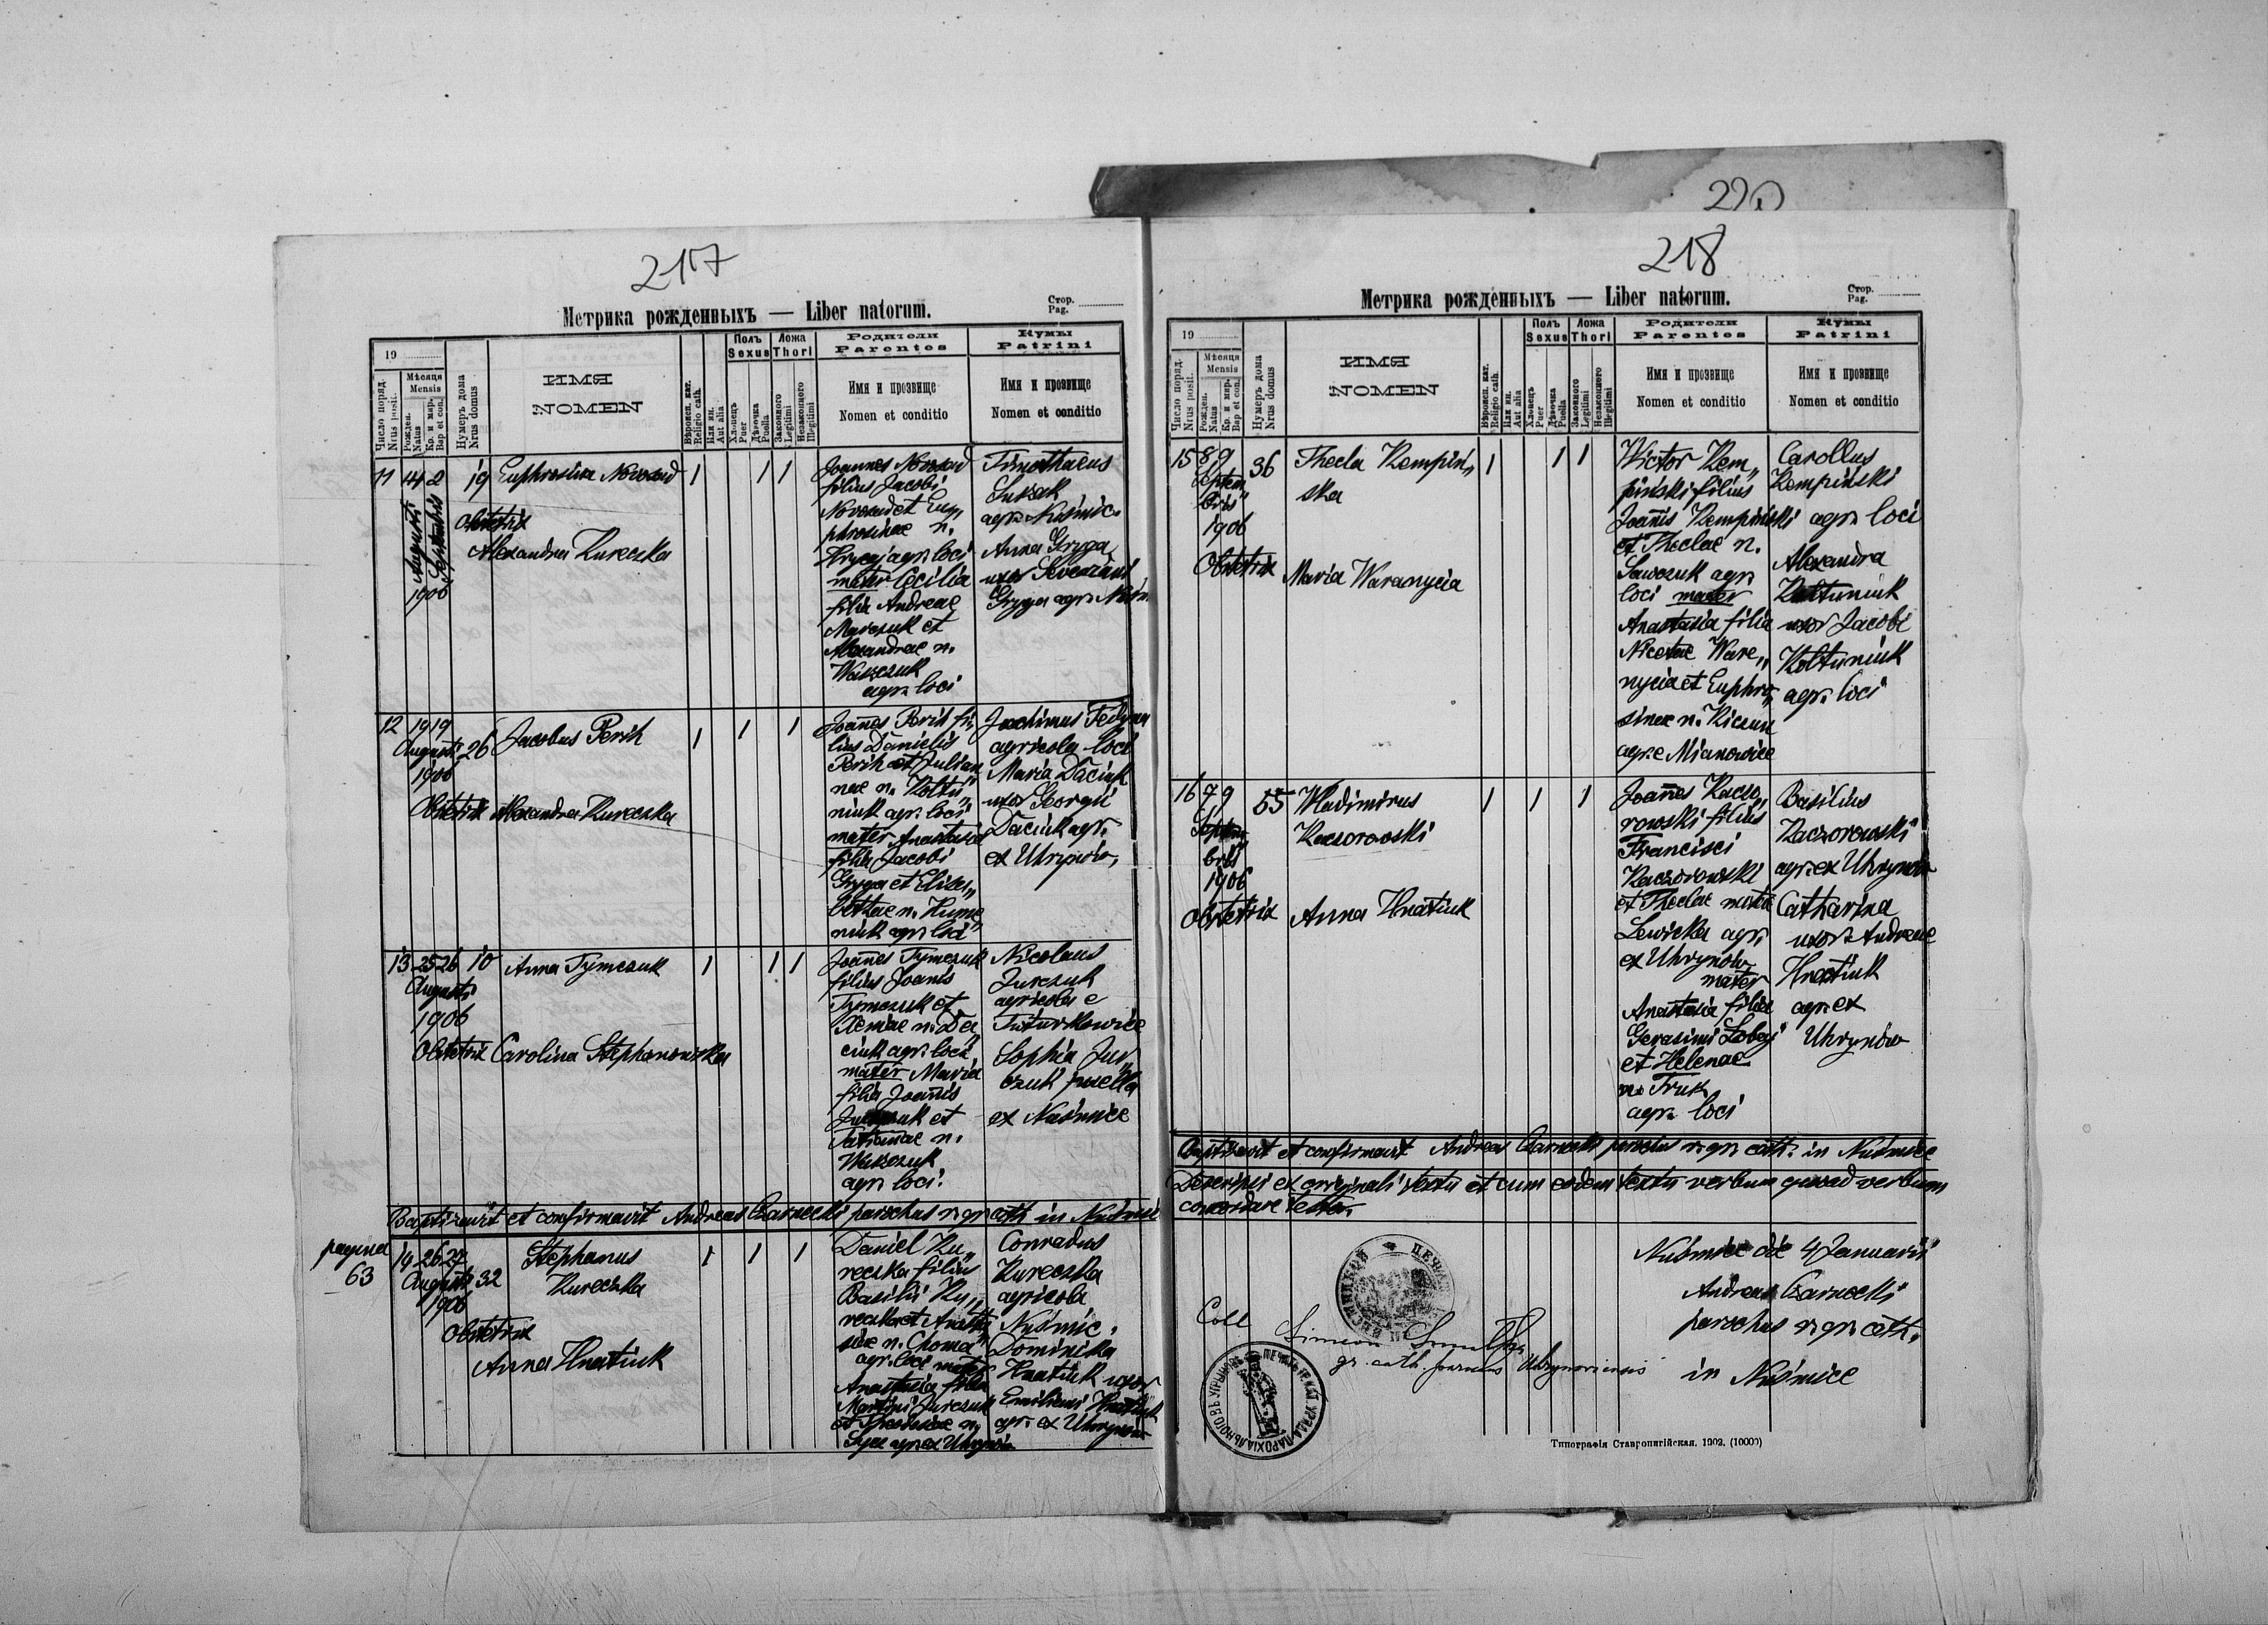 220
217
Метрика рожденныхъ — Liber natorum.
Стор.
Pag.
19
Число поряд.
Nrus posit.
Мѣсяця
Mensis
Рожден.
Natus
Кр. и мир.
Bap et con.
Нумеръ дома
Nrus domus
ИМЯ
NOMEN
Вѣроисп. кат.
Religio cath.
Или ин.
Aut alia
Полъ
Sexus
Хлопецъ
Puer
Дѣвочка
Puella
Ложа
Thori
Законного
Legitimi
Незаконного
Illegitimi
Родители
Parentes
Имя и прозвище
Nomen et conditio
Кумы
Patrini
Имя и прозвище
Nomen et conditio
11
Augusti
Septembris
1906
19
Euphrosina Novosad
Obstetrix
Alexandra Kureczka
1 1 1
Joannes Novosad
filius Jacobi
Novosad et Eu„
phrosinae n.
Hrycaj agr. loci
mater Cecilia
filia Andreae
Marczuk et
Alexandrae n.
agr. loci
Timothaeus
agr. Nuśmic.
Anna Gryga
uxor
Gryga agr.
12 19 19
Augusti
1906
26
Jacobus Perih
Obstetrix Alexandra Kureczka
1 1 1
Joannes Perih fi„
lius Danielis
Perih et Julian„
nae n. Koltu„
niuk agr. loci
mater Anastasia
filia Jacobi
Gryga et Elisa„
bethae n. Hume
niuk agr. loci
Joachimus
agricola loci
Maria Daciuk
uxor Georgii
Daciuk agr.
ex Uhrynów
13 25 26 10
Augusti
1906
Anna Tymczuk
Obstetrix Carolina Stephanowska
1 1 1
Joannes Tymczuk
filius Joanis
Tymczuk et
Xeniae n. Da„
ciuk agr. loci
mater Maria
filia Joannis
Jurczuk et
Tatianae n.
agr. loci.
Nicolaus
Jurczuk
agricola e
Tuturkowice
Sophia Jur„
czuk puella
ex Nuśmice
Baptisavit et confirmavit Andreas Czarnecki parochus r. gr. cath. in Nuśmice
pagina
63
14 26 27
Augusti 32
1906
Stephanus
Kureczka
Obstetrix
Anna Hnatiuk
1 1 1
Daniel Ku„
reczka filius
Basilii Ku„
reczka et Anasta„
siae n. Choma
agr. loci mater
Anastasia filia
Martini Jurczuk
et n.
agr. ex Uhrynów
Conradus
Kureczka
agricola
Nuśmic.
Dominika
Hnatiuk uxor
Emiliani Hnatiuk
agr. ex Uhrynów
218
Метрика рожденныхъ — Liber natorum.
Стор.
Pag.
19
Число поряд.
Nrus posit.
Мѣсяця
Mensis
Рожден.
Natus
Кр. и мир.
Bap et con.
Нумеръ дома
Nrus domus
ИМЯ
NOMEN
Вѣроисп. кат.
Religio cath.
Или ин.
Aut alia
Полъ
Sexus
Хлопецъ
Puer
Дѣвочка
Puella
Ложа
Thori
Законного
Legitimi
Незаконного
Illegitimi
Родители
Parentes
Имя и прозвище
Nomen et conditio
Кумы
Patrini
Имя и прозвище
Nomen et conditio
15 8 9
Septem„
bris
1906
36
Thecla Kempiń„
ska
Obstetrix Maria Waranycia
1 1 1
Victor Kem„
piński filius
Joannis Kempiński
et Theclae n.
Sawczuk agr.
loci mater
Anastasia filia
Nicetae Ware„
nycia et Euphro„
sinae n. Kiczun
agr. e Mianowice
Carollus
Kempiński
agr. loci
Alexandra
Koltuniuk
uxor Jacobi
Koltuniuk
agr. loci
16 7 9
Septem„
bris
1906
55
Wladimirus
Kaczorowski
Obstetrix Anna Hnatiuk
1 1 1
Joannes Kaczo„
rowski filius
Francisci
Kaczorowski
et Theclae
Lewicka agr.
ex Uhrynów
mater
Anastasia filia
Gerasimi Lobaj
et Helenae
n. Truk
agr. loci
Basilius
Kaczorowski
agr. ex Uhrynów
Catharina
uxor Andreae
Hnatiuk
agr. ex
Uhrynów
Baptisavit et confirmavit Andreas Czarnecki parochus r. gr. cath. in Nuśmice
Descripsi ex originali textu et cum eodem textu verbum quoad verbum
concordare testor.
Nuśmice die 4 Januarii
Andreas Czarnecki
parochus r. gr. cath.
in Nuśmice
Coll
Simeon
gr. cath. parochus Uhrynoviensis
Типографія Ставропигійская. 1902. (10000)